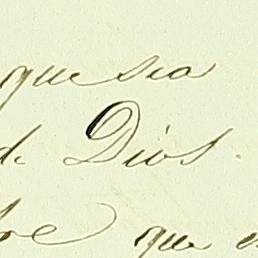 que sea
de Dios.
que